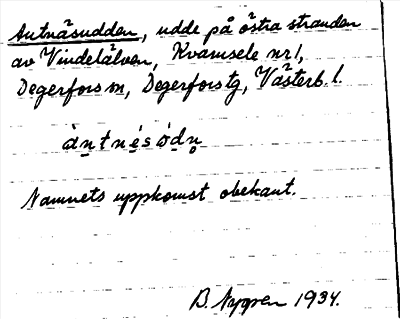 Antnäsudden, udde på östra stranden
av Vindelälven, Kvarnsele nr 1,
Degerfors sn, Degerfors tg, Västerb. l.
àn̲tnèsòdn̥
Namnets uppkomst obekant.
B. Nygren 1934.